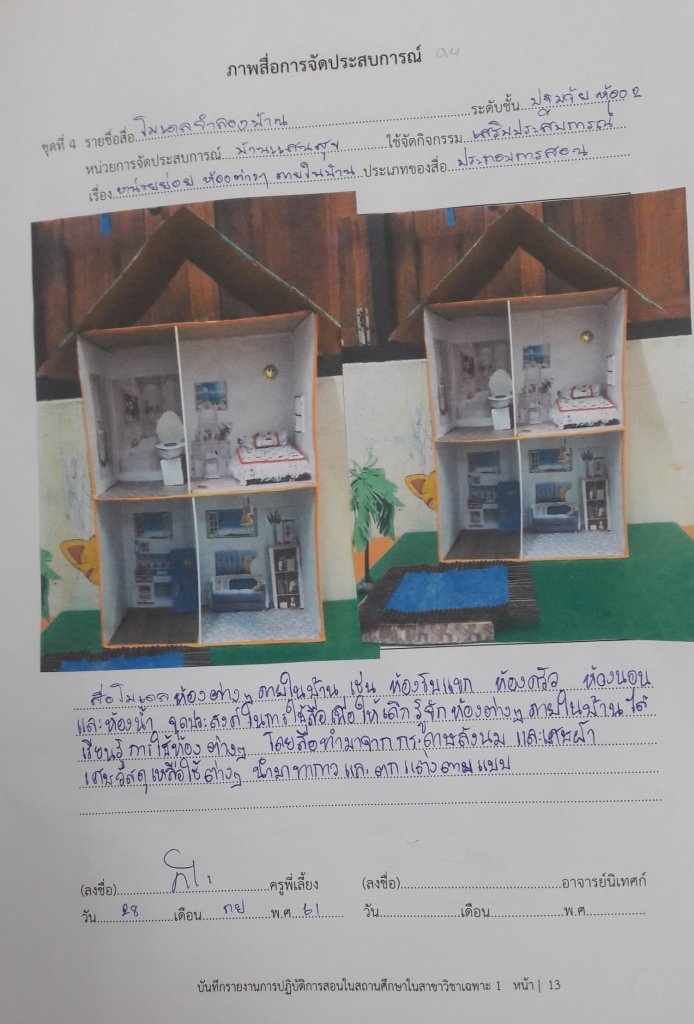 ภาพสื่อการจัดประสบการณ์
ชุดที่ 4 รายชื่อสื่อ โมเดลจำลองบ้าน ระดับชั้น ปฐมวัย ห้อง 2
หน่วยการจัดประสบการณ์ บ้านแสนสุข ใช้จัดกิจกรรม เสริมประสบการณ์
เรื่อง หน่วยย่อย ห้องต่างๆ ภายในบ้าน ประเภทของสื่อ ประกอบการสอน
สื่อโมเดลห้องต่างๆ ภายในบ้าน เช่น ห้องรับแขก ห้องครัว ห้องนอน
และห้องน้ำ จุดประสงค์ในการใช้สื่อเพื่อให้เด็กรู้จักห้องต่างๆ ภายในบ้านได้
เรียนรู้การใช้ห้องต่างๆ โดยสื่อทำมาจากกระดาษลังนม และเศษผ้า
เศษวัสดุเหลือใช้ต่างๆ นำมาทากาวและตกแต่งตามแบบ
(ลงชื่อ) ครูพี่เลี้ยง (ลงชื่อ) อาจารย์นิเทศก์
วัน 28 เดือน กย พ.ศ 61 วัน เดือน พ.ศ.
บันทึกรายงานการปฏิบัติการสอนในสถานศึกษาในสาขาวิชาเฉพาะ 1 หน้า | 13